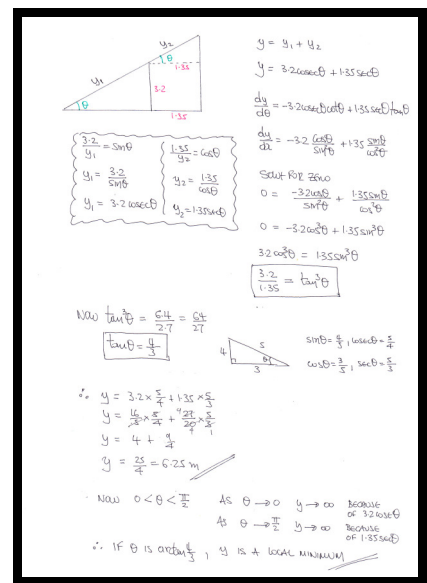 y₂
θ
1.35
y₁
3.2
θ
1.35
y = y₁ + y₂
y = 3.2cosecθ + 1.35secθ
dy/dθ = -3.2cosecθcotθ + 1.35secθtanθ
dy/dx = -3.2 cosθ/sin²θ + 1.35 sinθ/cos²θ
SOLVE FOR ZERO
0 = -3.2cosθ/sin²θ + 1.35sinθ/cos²θ
0 = -3.2cos³θ + 1.35sin³θ
3.2cos³θ = 1.35sin³θ
3.2/1.35 = tan³θ
3.2/y₁ = sinθ
y₁ = 3.2/sinθ
y₁ = 3.2cosecθ
1.35/y₂ = cosθ
y₂ = 1.35/cosθ
y₂ = 1.35secθ
NOW tan³θ = 6.4/2.7 = 64/27
tanθ = 4/3
4
5
θ
3
sinθ = 4/5, cosecθ = 5/4
cosθ = 3/5, secθ = 5/3
∴ y = 3.2 × 5/4 + 1.35 × 5/3
y = 16/5 × 5/4 + 27/20 × 5/3
y = 4 + 9/4
y = 25/4 = 6.25 m
NOW 0 < θ < π/2
AS θ → 0 y → ∞ BECAUSE OF 3.2cosecθ
AS θ → π/2 y → ∞ BECAUSE OF 1.35secθ
∴ IF θ IS arctan 4/3, y IS A LOCAL MINIMUM